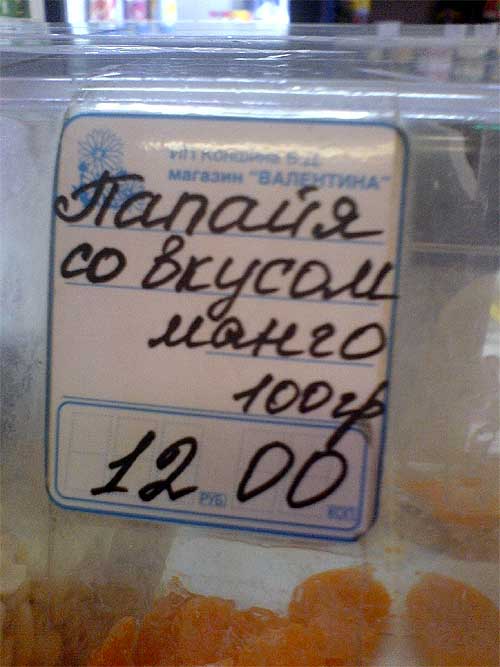 ИП Коншина В.Д.
магазин "ВАЛЕНТИНА"
Папайя
со вкусом
манго
100гр
12 00
РУБ. КОП.